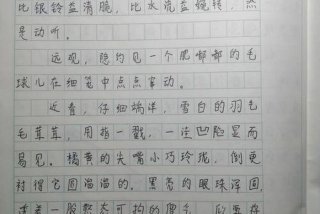 比银铃益清脆，比水流益婉转，煞
是动听。
远观，隐约见一个肥嘟嘟的毛
球儿在细笼中点点窜动。
近看，仔细端详，雪白的羽毛
毛茸茸，用指一戳，一注凹陷显而
易见。橘黄的尖嘴小巧玲珑，倒更
衬得它圆溜溜的。黑亮的眼珠浮回
一股憨态可掬的傻气